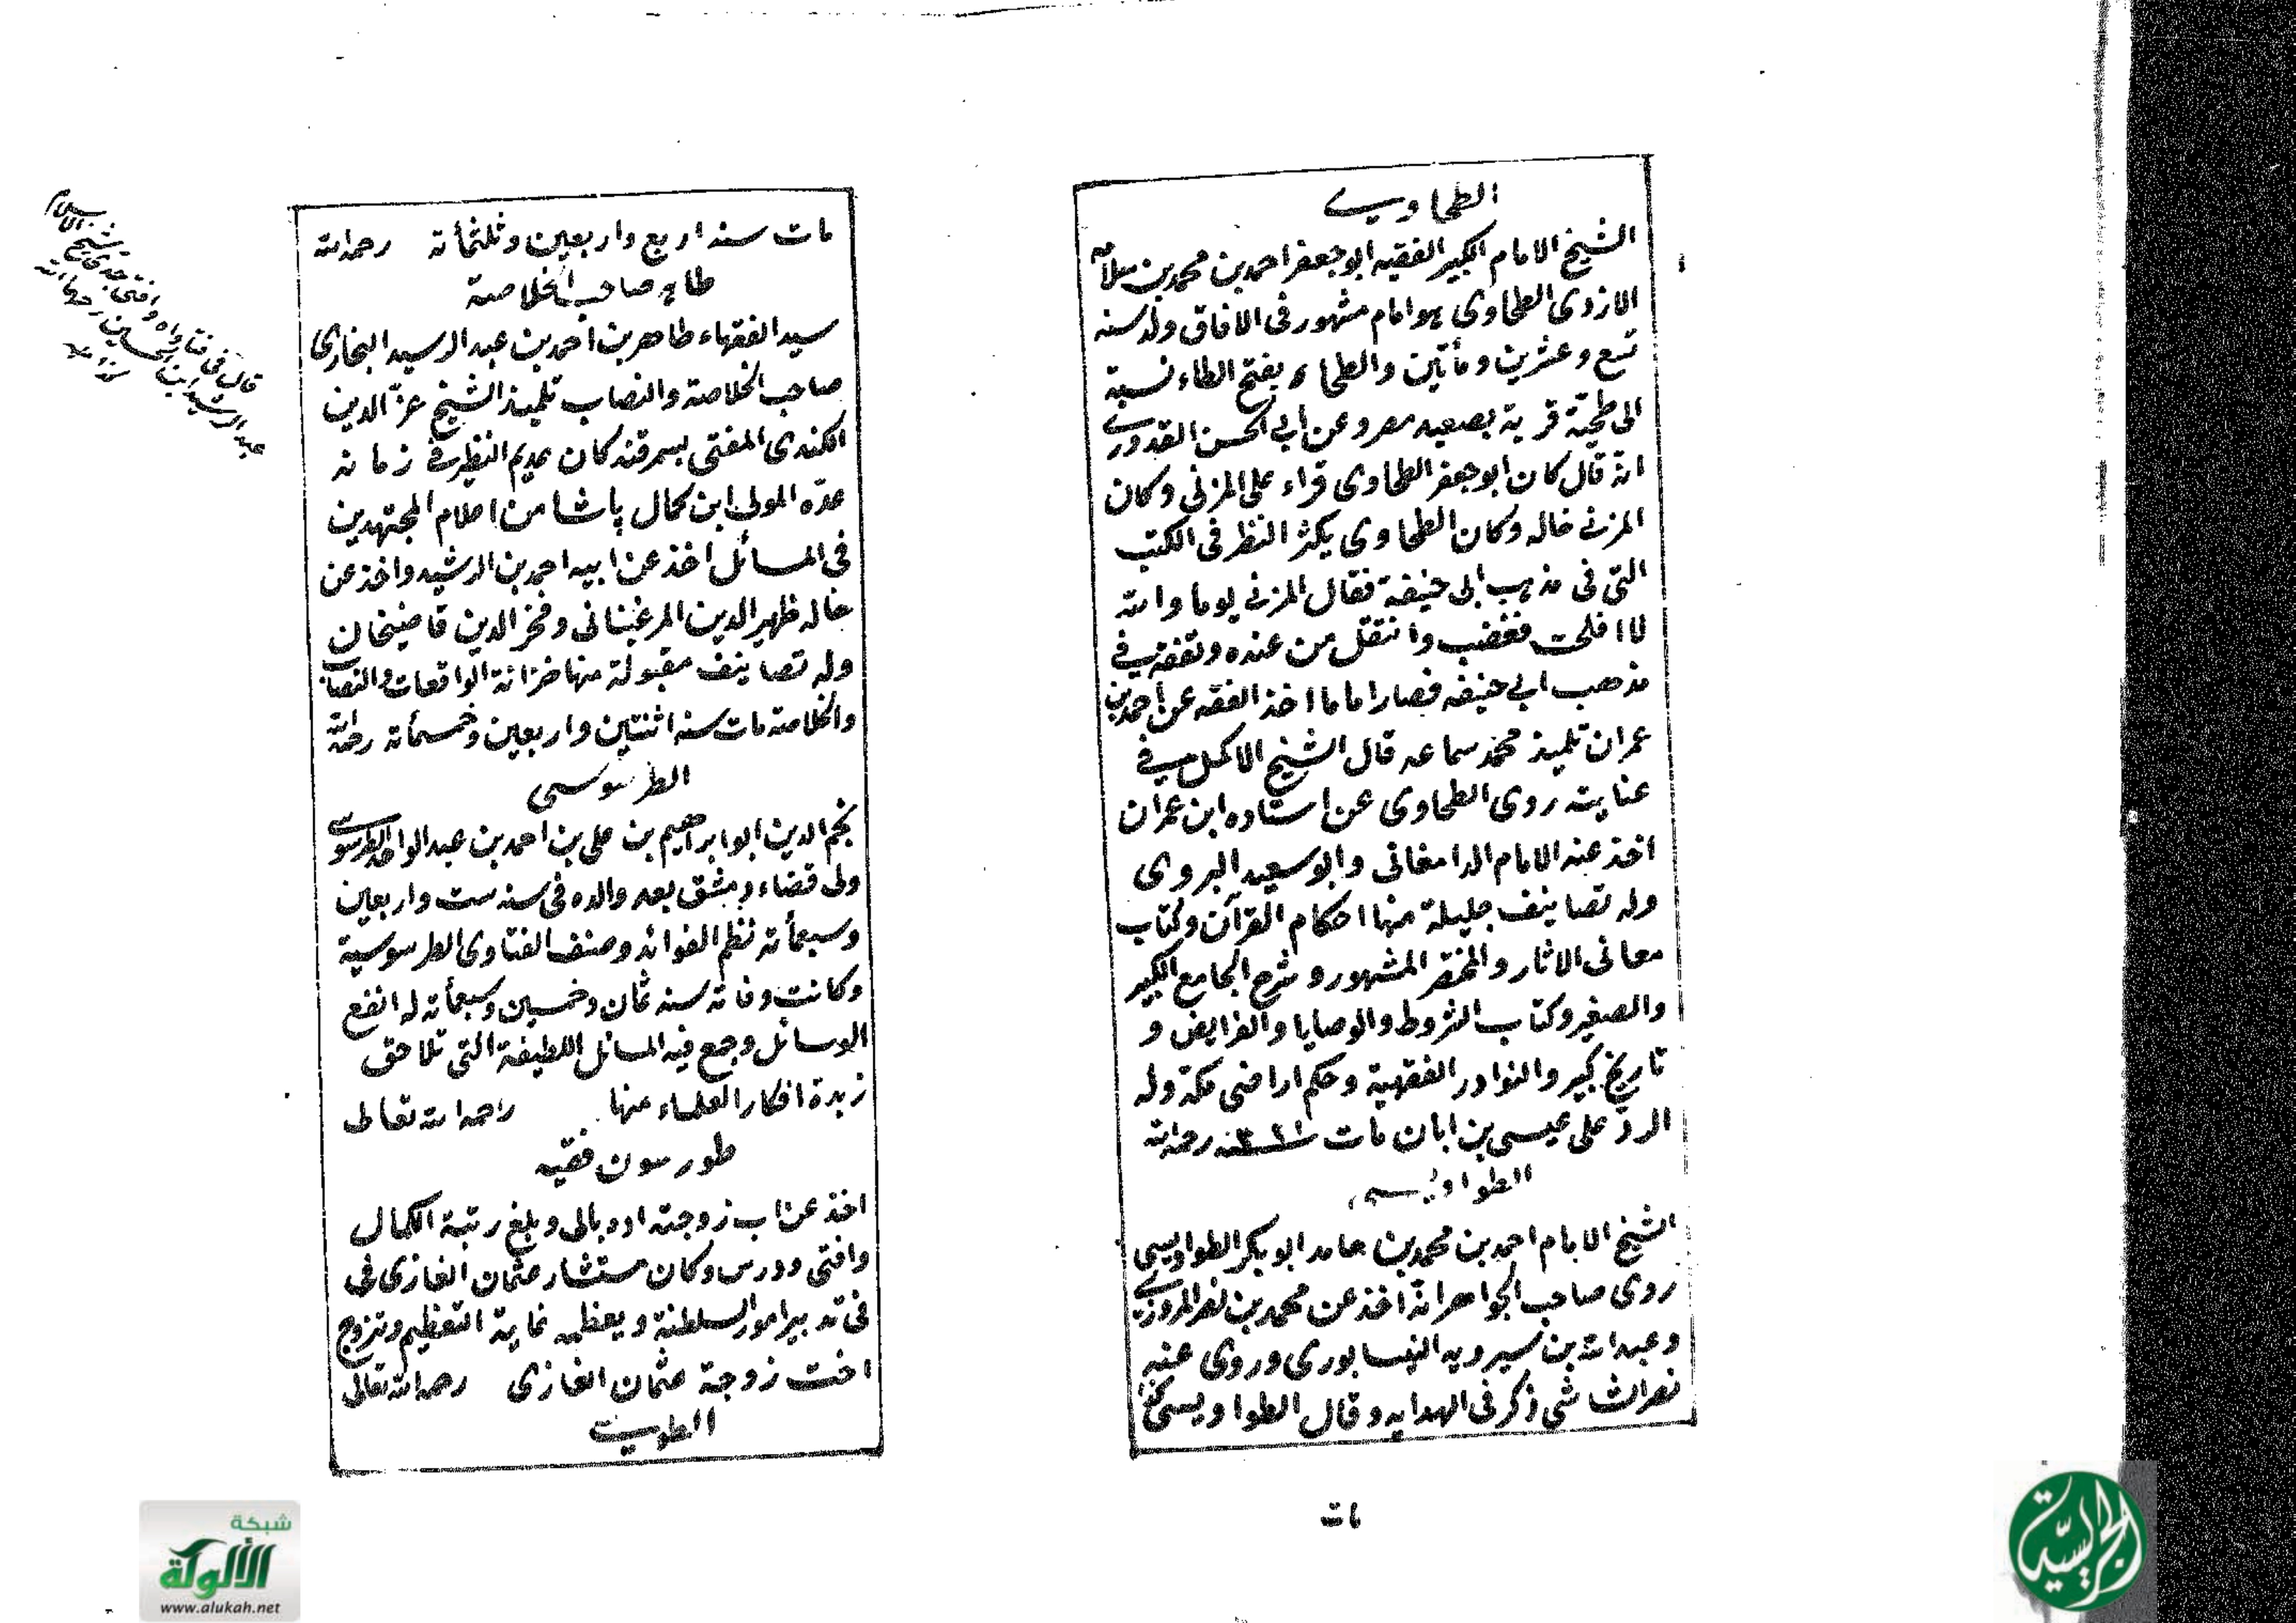 الطحاوي
الشيخ الامام الكبير الفقيه ابو جعفر احمد بن محمد بن سلامه
الازدى الطحاوى هو امام مشهور فى الافاق ولد سنه
تسع وعشرين ومأتين والطحاو بفتح الطاء نسبة
الى طحية قرية بصعيد مصر وعن ابى الحسن القدورى
انه قال كان ابو جعفر الطحاوى قراء على المزنى وكان
المزنى خاله وكان الطحاوى يكثر النظر فى الكتب
التى فى مذهب ابى حنيفة فقال المزنى يوما والله
لا افلحت فغضب وانتقل من عنده وتفقه فى
مذهب ابى حنيفه فصار اماما اخذ الفقه عن احمد بن
عمران تلميذ محمد سماعه قال الشيخ الاكمل فى
عنايته روى الطحاوى عن استاده ابن عمران
اخذ عنه الامام الدامغانى وابو سعيد البروى
وله تصانيف جليلة منها احكام القرآن وكتاب
معانى الاثار والمختصر المشهور وشرح الجامع الكبير
والصغير وكتاب الشروط والوصايا والفرايض و
تاريخ كبير والنوادر الفقهية وحكم اراضى مكة وله
الرد على عيسى بن ابان مات سنه ٣٢١ رحمه الله
الطواويسى
الشيخ الامام احمد بن محمد بن حامد ابو بكر الطواويسى
روى صاحب الجواهر انه اخذ عن محمد بن نصر المروزى
وعبد الله بن سيرويه النيسابورى وروى عنه
نصر الشاشى ذكر فى الهدايه وقال الطواويسى
مات
مات سنه اربع واربعين وثلثمأئة رحمه الله
طاهر صاحب الخلاصة
سيد الفقهاء طاهر بن احمد بن عبد الرسيد البخارى
صاحب الخلاصة والنصاب تلميذ الشيخ عز الدين
الكندى المفتى بسمرقند كان عديم النظير فى زمانه
عده المولى ابن كمال پاشا من اعلام المجتهدين
فى المسائل اخذ عن ابيه احمد بن الرشيد واخذ عن
خاله ظهير الدين المرغينانى وفخر الدين قاضيخان
وله تصانيف مقبولة منها خزانة الواقعات والنصاب
والخلاصة مات سنه اثنتين واربعين وخمسمأئة رحمه الله
الطرسوسى
نجم الدين ابو ابراهيم بن على بن احمد بن عبد الواحد الطرسوسى
ولى قضاء دمشق بعد والده فى سنه ست واربعين
وسبعمأئة نظم الفوائد وصنف الفتاوى الطرسوسية
وكانت وفاته سنه ثمان وخمسين وسبعمأئة له انفع
الوسائل وجمع فيه المسائل اللطيفة التى تلاحق
زبدة افكار العلماء منها رحمه الله تعالى
طورسون فقيه
اخذ عن اب زوجته اده بالى وبلغ رتبة الكمال
وافتى ودرس وكان مستشار عثمان الغازى فى
فى تدبير امور السلطنة ويعظمه غاية التعظيم وتزوج
اخت زوجة عثمان الغازى رحمه الله تعالى
الطوسى
قال فى فتاواه وافتى جدى شيخ الاسلام
عبد الرشيد ابن الحسين رحمهما الله
شبكة
الألوكة
www.alukah.net